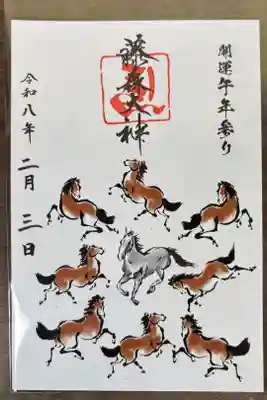 開運午年参り
藤森大神
令和八年 二月 三日